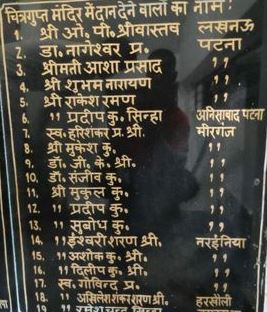 चित्रगुप्त मंदिर में दान देने वालों का नाम:
1. श्री ओ. पी. श्रीवास्तव लखनऊ
2. डा. नागेश्वर प्र. पटना
3. श्रीमती आशा प्रसाद ,,
4. श्री शुभम नारायण ,,
5. श्री राकेश रमण ,,
6. ,, प्रदीप कु. सिन्हा अनिसाबाद पटना
7. स्व. हरिशंकर प्र. श्री. मीरगंज
8. श्री मुकेश कु. ,,
9. डॉ. जी. के. श्री. ,,
10. डॉ. संजीव कु. ,,
11. श्री मुकुल कु. ,,
12. ,, प्रदीप कु. ,,
13. ,, सुबोध कु. ,,
14. ,, ईश्वरी शरण श्री. नरईनिया
15. ,, अशोक कु. श्री. ,,
16. ,, दिलीप कु. श्री. ,,
17. स्व. गोविन्द प्र. ,,
18. ,, अखिलेश शंकर शरण श्री. हरसीली
19. ,, रमेश चन्द्र सिन्हा